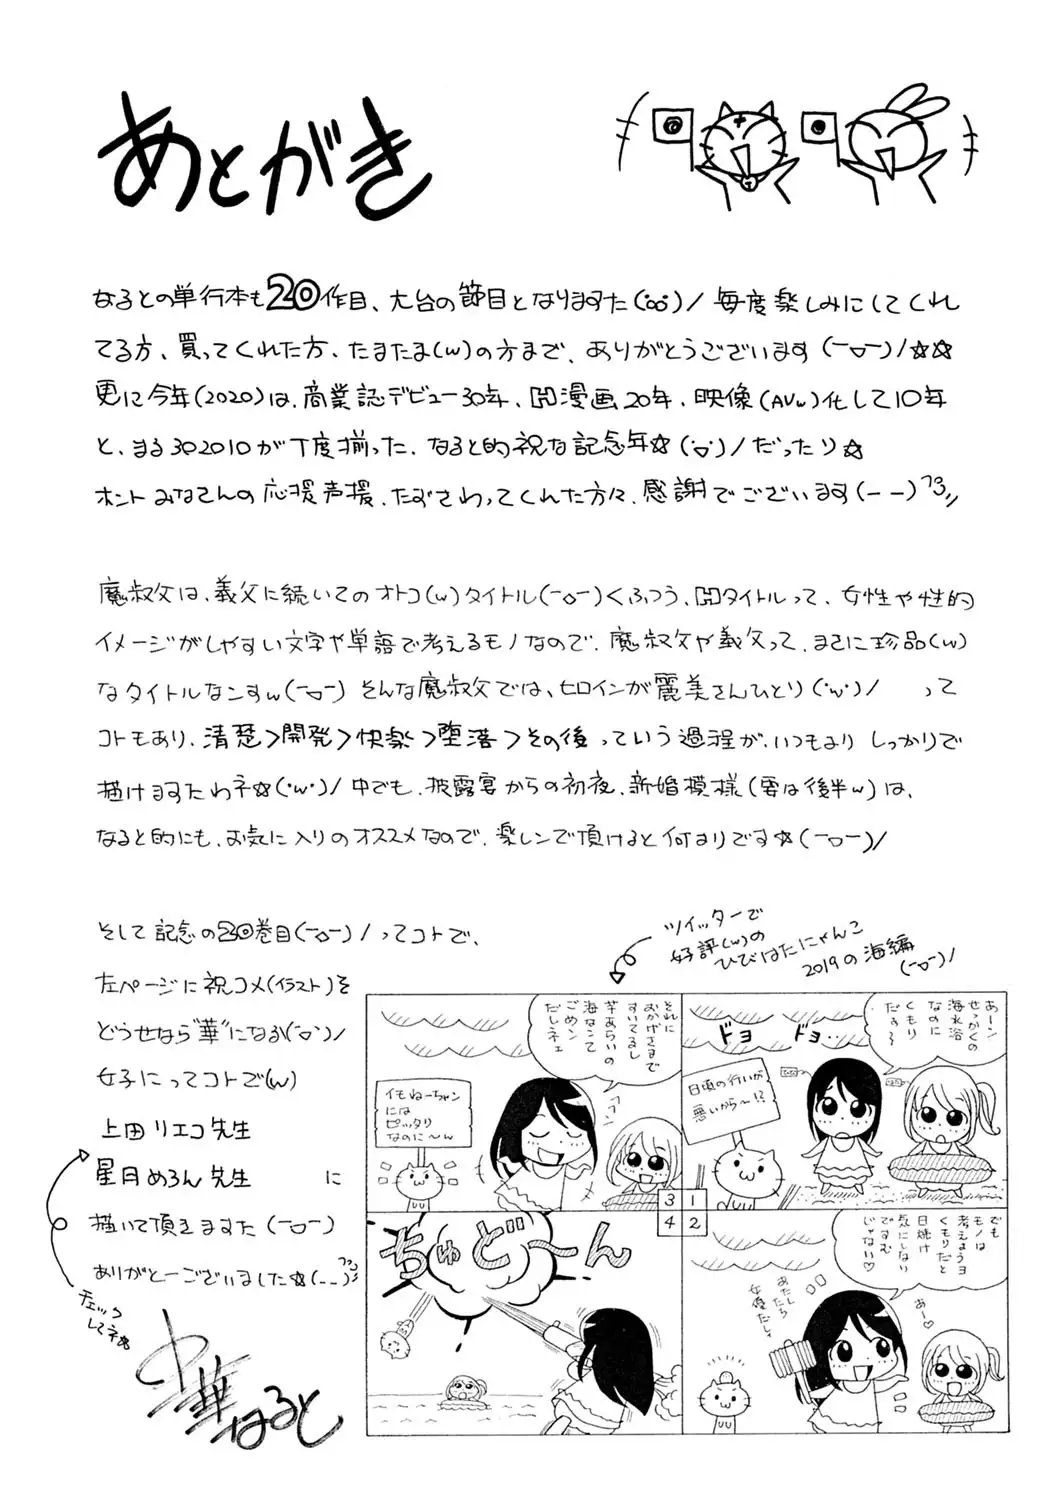 あとがき
なるとの単行本も20作目、大台の節目となりますた(°o°)/ 毎度楽しみにしてくれ
てる方、買ってくれた方、たまたま(w)の方まで、ありがとうございます(ー▽ー)/☆☆
更に今年(2020)は、商業誌デビュー30年、H漫画20年、映像(AVw)化して10年
と、まる302010が丁度揃った、なると的祝な記念年☆(˙▽˙)/だったり☆
ホントみなさんの応援声援、たずさわってくれた方々、感謝でございます(ーー)フコ〃
魔叔父は、義父に続いてのオトコ(w)タイトル(ー◇ー)くふつう、Hタイトルって、女性や性的
イメージがしやすい文字や単語で考えるモノなので、魔叔父や義父って、まさに珍品(w)
なタイトルなんすw(ー▽ー) そんな魔叔父では、ヒロインが麗美さんひとり(˙w˙)/ って
コトもあり、清楚>開発>快楽>堕落>その後 っていう過程が、いつもより しっかりで
描けますたわネ☆(˙w˙)/ 中でも、披露宴からの初夜、新婚模様(要は後半w)は、
なると的にも、お気に入りのオススメなので、楽しンで頂けると何よりです☆(ー▽ー)/
そして記念の20巻目(ー◇ー)/ってコトで、
左ページに祝コメ(イラスト)を
どうせなら"華"になる(˙▽˙)/
女子にってコトで(w)
上田リエコ先生
星月めろん先生 に
描いて頂きますた(ー▽ー)
ありがとーございました☆(ーー)フコ〃
チェック
してネ☆
中華なると
ツイッターで
好評(w)の
ひびはたにゃんこ
2019の海編
(ー▽ー)/
あーン
せっかくの
海水浴
なのに
くもり
だす〜
ドヨ ドヨ‥
日頃の行いが
悪いから〜!?
1
でも
モノは
考えようヨ
くもりだと
日焼け
気にしない
ですむ
じゃない♡
あー♡
あたしたち
女優だし♪
2
それに
おかげさまで
すいてるし
芋あらいの
海なんて
ごめン
だしネェ
フフン
イモねーちゃン
には
ピッタリ
なのに〜ん
3
ちゅど〜ん
4